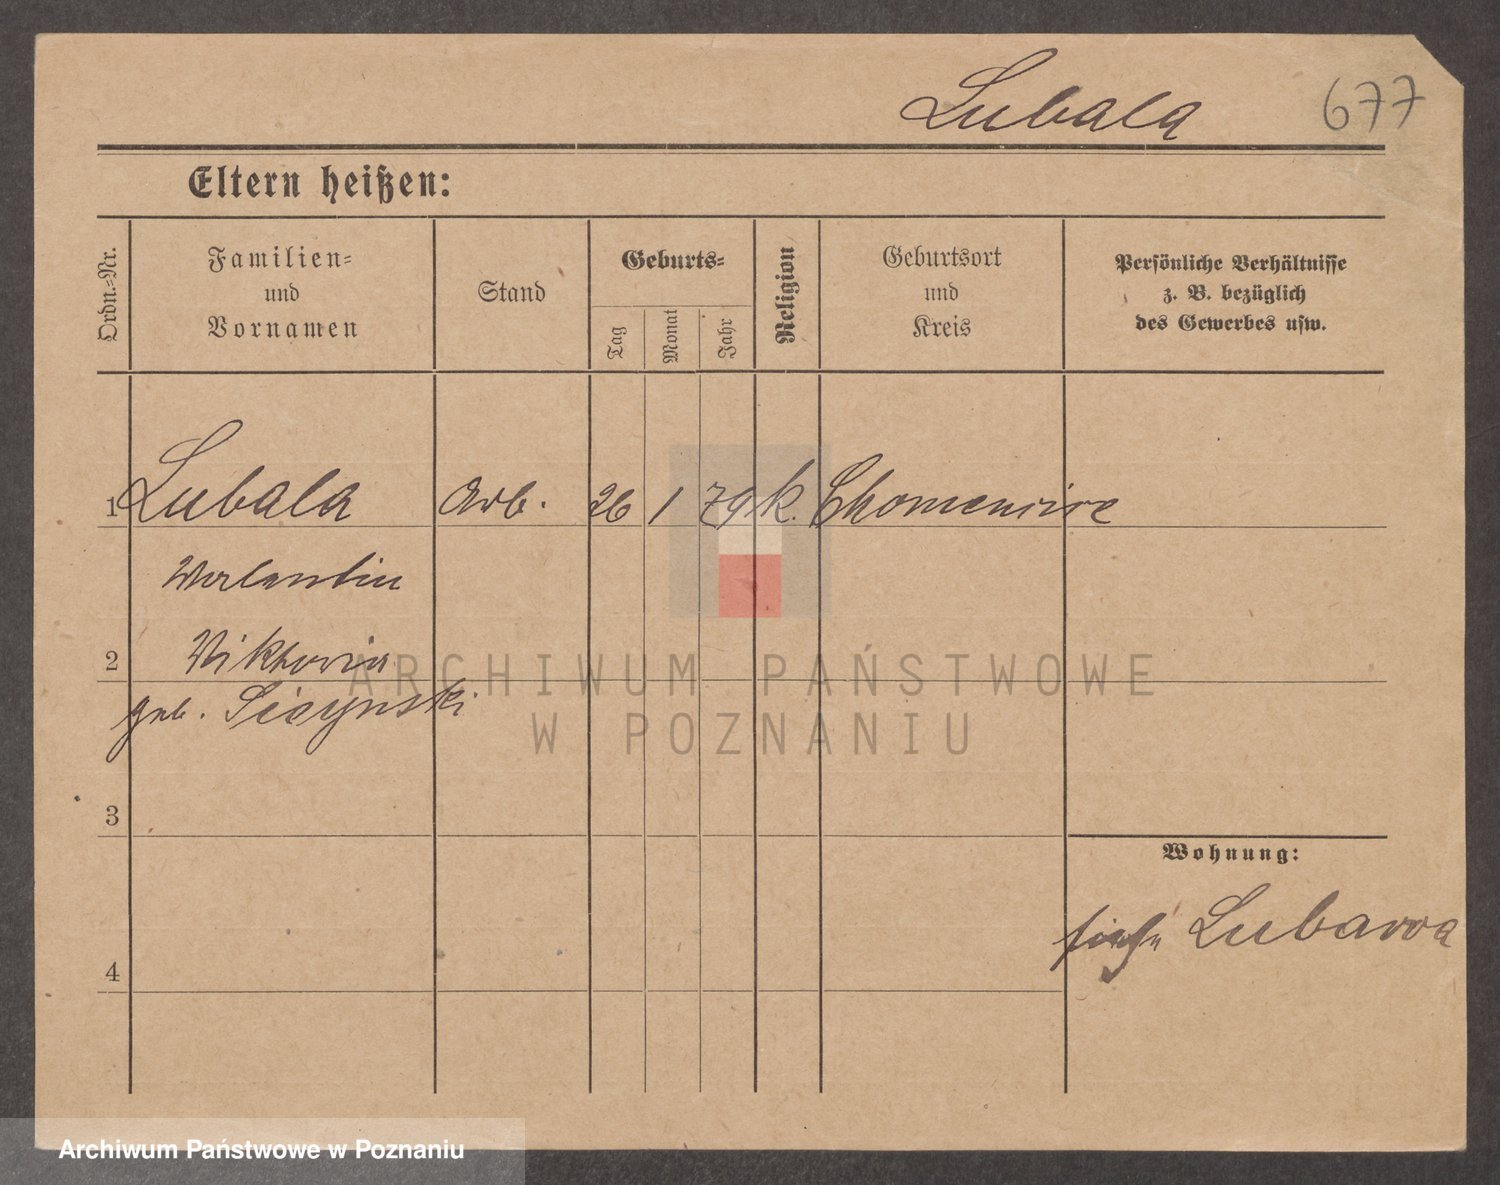 Lubala
677
Eltern heißen:
Ordn.-Nr.
Familien-
und
Vornamen
Stand
Geburts-
Tag
Monat
Jahr
Religion
Geburtsort
und
Kreis
Persönliche Verhältnisse
z. B. bezüglich
des Gewerbes usw.
1 Lubala Arb. 26 1 79 k.
Valentin
2 Viktoria
geb.
3
Wohnung:
siehe Lubawa
4
ARCHIWUM PAŃSTWOWE
W POZNANIU
Archiwum Państwowe w Poznaniu